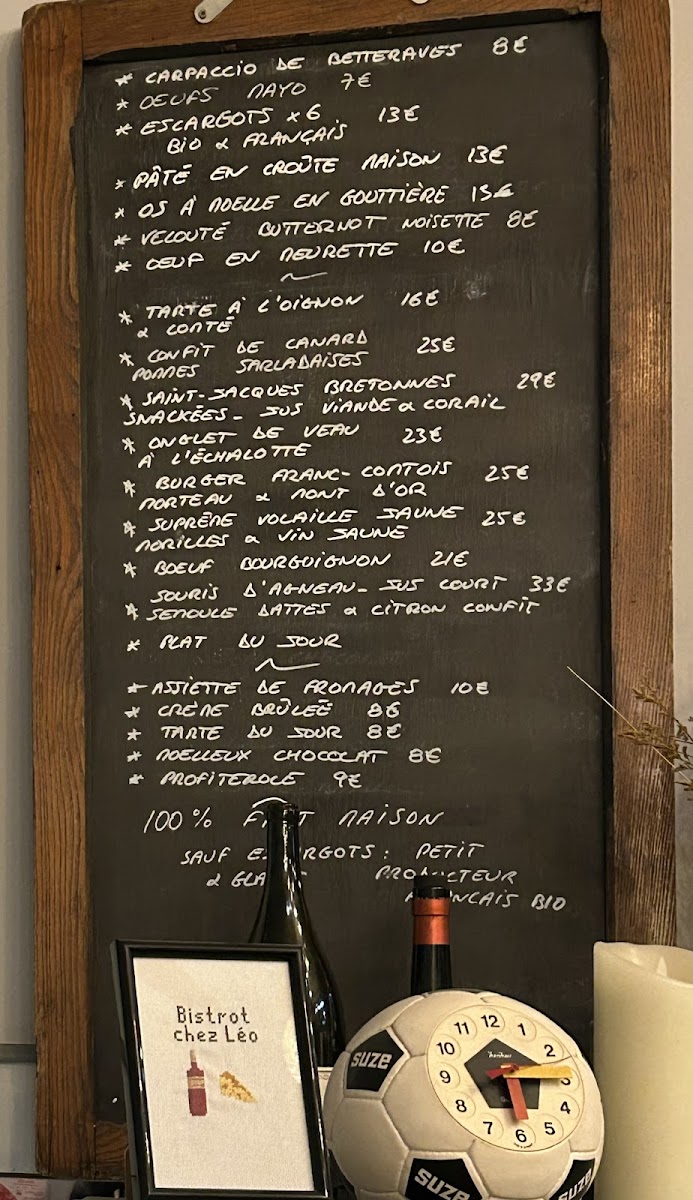 * CARPACCIO DE BETTERAVES 8€
* OEUFS MAYO 7€
* ESCARGOTS x6 13€
BIO & FRANÇAIS
* PÂTÉ EN CROÛTE MAISON 13€
* OS À MOELLE EN GOUTTIÈRE 13€
* VELOUTÉ BUTTERNOT NOISETTE 8€
* OEUF EN MEURETTE 10€
* TARTE À L'OIGNON 16€
& COMTÉ
* CONFIT DE CANARD 25€
POMMES SARLADAISES
* SAINT-JACQUES BRETONNES 29€
SNACKÉES - JUS VIANDE & CORAIL
* ONGLET DE VEAU 23€
À L'ÉCHALOTTE
* BURGER FRANC-COMTOIS 25€
MORTEAU & MONT D'OR
* SUPRÊME VOLAILLE JAUNE 25€
MORILLES & VIN JAUNE
* BOEUF BOURGUIGNON 21€
SOURIS D'AGNEAU - JUS COURT 33€
* SEMOULE DATTES & CITRON CONFIT
* PLAT DU JOUR
* ASSIETTE DE FROMAGES 10€
* CRÈME BRÛLEÉ 8€
* TARTE DU JOUR 8€
* MOELLEUX CHOCOLAT 8€
* PROFITEROLE 9€
100% FAIT MAISON
SAUF ESCARGOTS : PETIT
& PRODUCTEUR
FRANCAIS BIO
Bistrot
chez Léo
SUZE
SUZE
SUZE
12
1
2
3
4
5
6
7
8
9
10
11